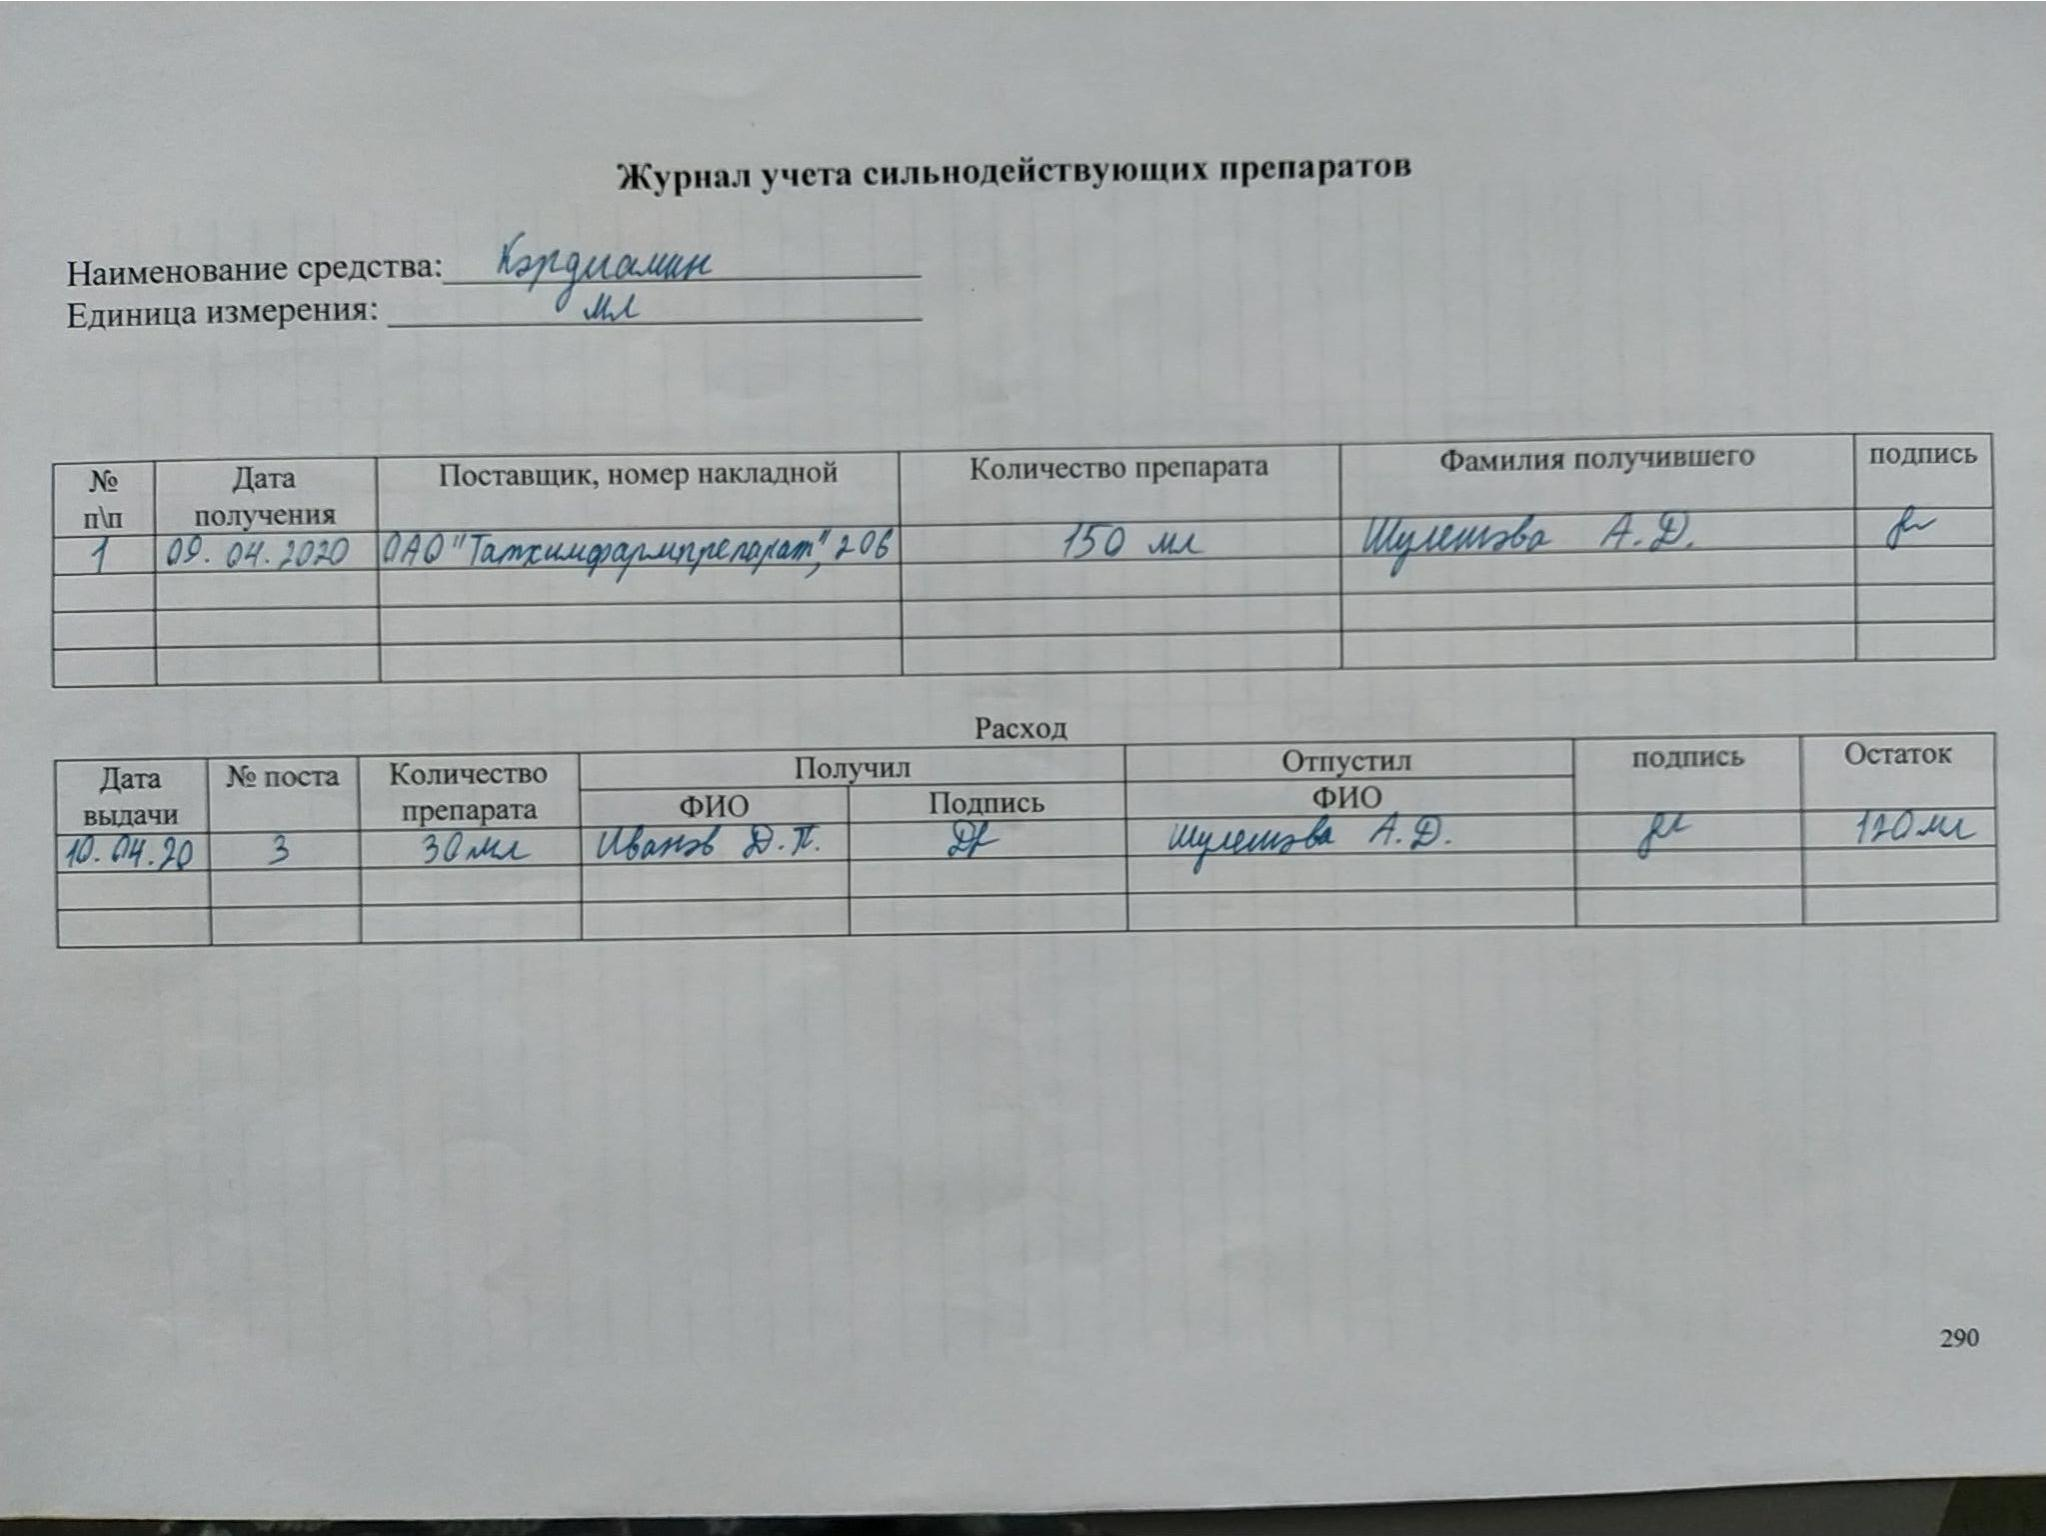 Журнал учета сильнодействующих препаратов
Наименование средства: Кордиамин
Единица измерения: мл
№ п\п Дата получения Поставщик, номер накладной Количество препарата Фамилия получившего подпись
1 09.04.2020 ОАО "Татхимфармпрепарат", 206 150 мл Шулетова А.Д.
Расход
Дата выдачи № поста Количество препарата Получил Отпустил подпись Остаток
ФИО Подпись ФИО
10.04.20 3 30 мл Иванов Д.П. Шулетова А.Д. 120 мл
290